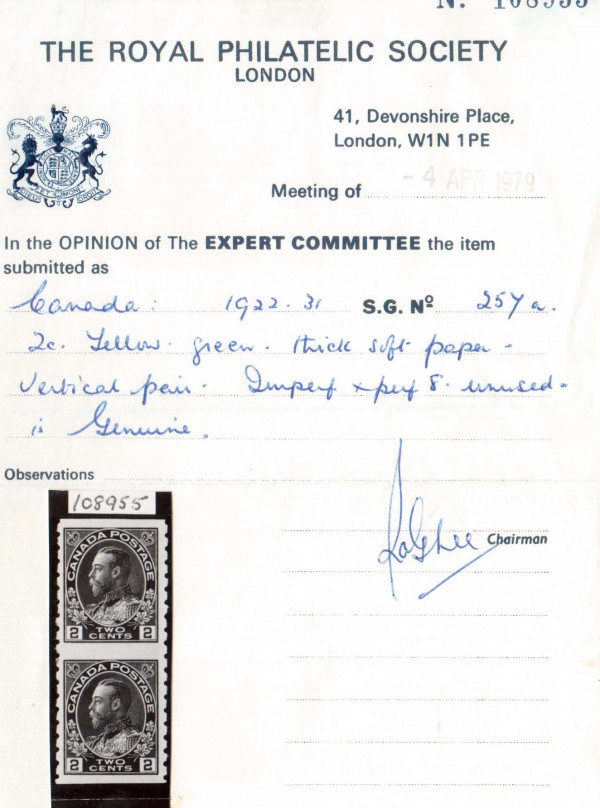 N. 108955
THE ROYAL PHILATELIC SOCIETY
LONDON
41, Devonshire Place,
London, W1N 1PE
Meeting of - 4 APR 1979
In the OPINION of The EXPERT COMMITTEE the item
submitted as
Canada: 1922-31 S.G. Nº 257a.
2c. Yellow-green. thick soft paper -
Vertical pair. Imperf x perf 8. unused -
is Genuine.
Observations
108955
Chairman
CANADA POSTAGE
2 TWO CENTS 2
CANADA POSTAGE
2 TWO CENTS 2